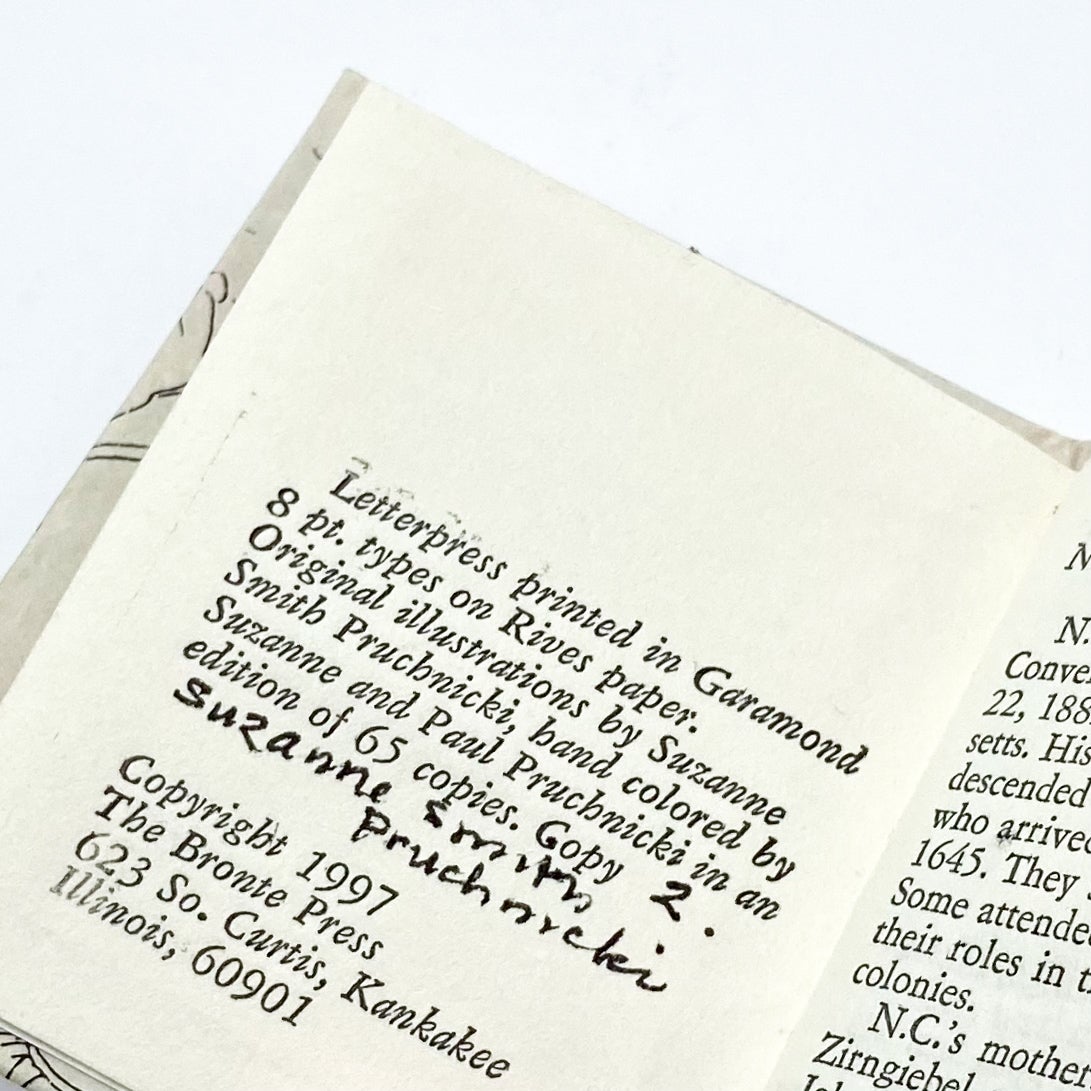 Letterpress printed in Garamond
8 pt. types on Rives paper.
Original illustrations by Suzanne
Smith Pruchnicki, hand colored by
Suzanne and Paul Pruchnicki in an
edition of 65 copies. Copy 2.
Suzanne Smith
Pruchnicki
Copyright 1997
The Bronte Press
623 So. Curtis, Kankakee
Illinois, 60901
N.
22, 188
setts. His
descended
who arrived
1645. They
Some attended
their roles in
colonies.
N.C.'s mother
Zirngiebel